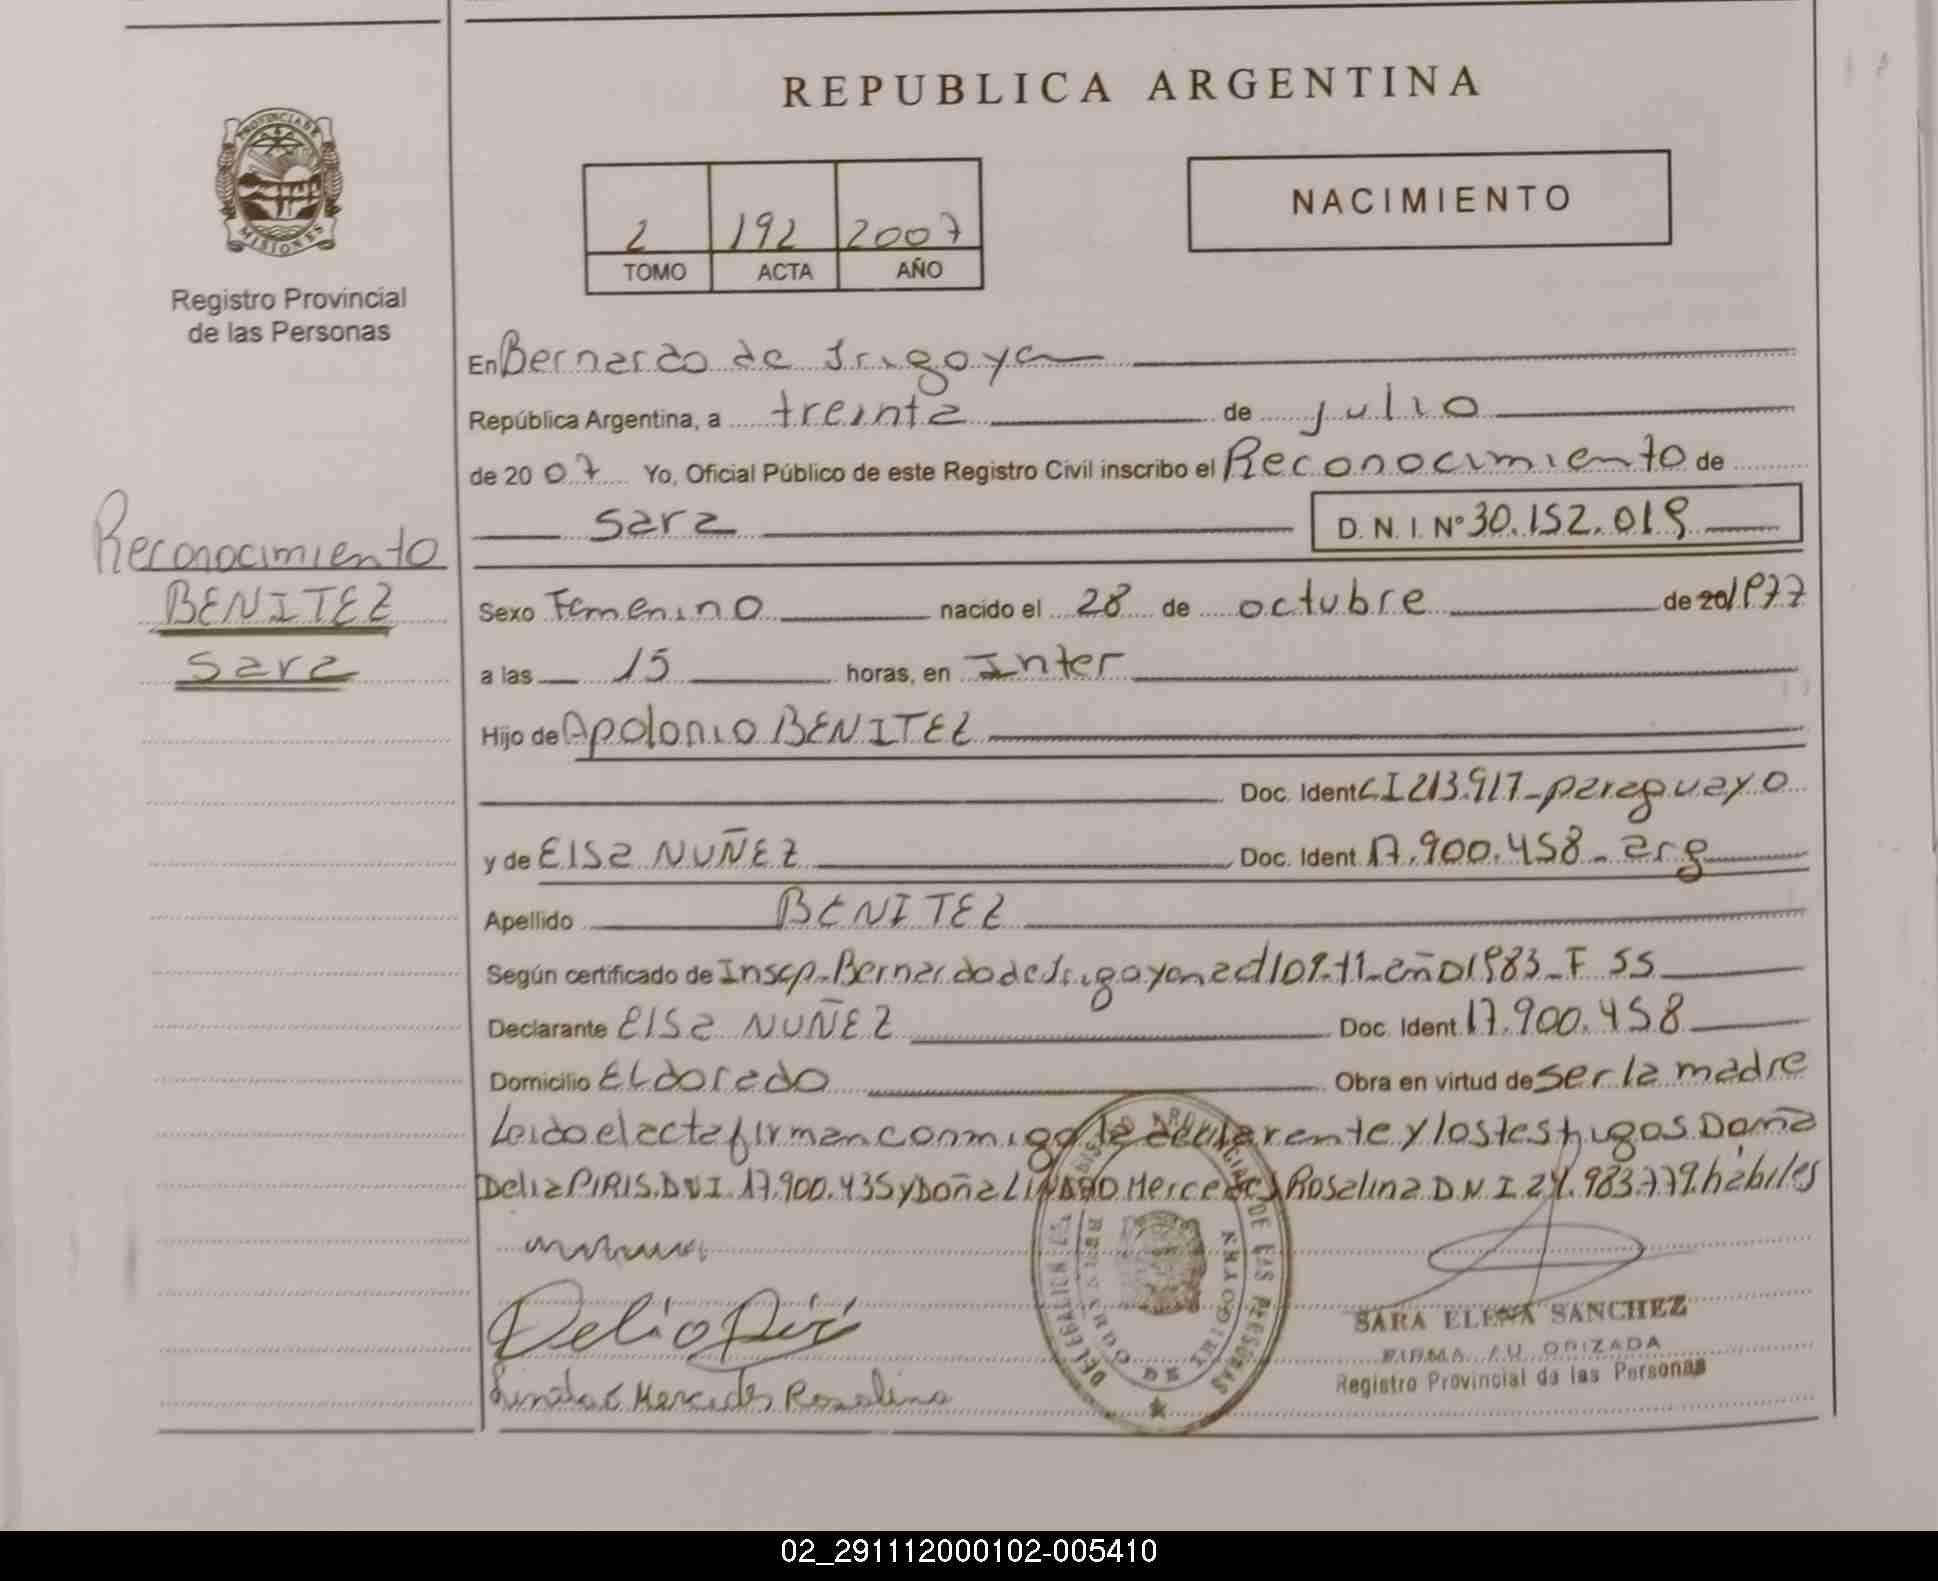 REPUBLICA ARGENTINA
PROVINCIA DE
MISIONES
Registro Provincial
de las Personas
2 192 2007
TOMO ACTA AÑO
NACIMIENTO
En Bernardo de Irigoye
República Argentina, a treinta de julio
de 2007 Yo, Oficial Público de este Registro Civil inscribo el Reconocimiento de
Sara D. N. I. Nº 30.152.019
Reconocimiento
BENITEZ
Sara
Sexo Femenino nacido el 28 de octubre de 20 1977
a las 15 horas, en Inter
Hijo de Apolonio BENITEZ
Doc. Ident CI 213.917-paraguayo
y de Elsa NUÑEZ Doc. Ident. 17.900.458-arg
Apellido BENITEZ
Según certificado de Inscp-Bernardo de Irigoyen act 109-t1-año 1983-F 55
Declarante Elsa NUÑEZ Doc. Ident. 17.900.458
Domicilio Eldorado Obra en virtud de ser la madre
Leido el acta firman conmigo la declarente y los testigos Doña
Delia PIRIS.D.N.I. 17.900.435 y Doña LINDAO Mercedes Rosalina D.N.I. 24.983.779.hábiles
SARA ELENA SANCHEZ
FIRMA AUTORIZADA
Registro Provincial de las Personas
Mercedes Rosalina
DE LAS PERSONAS
DELEGACION
BERNARDO DE IRIGOYEN
02_291112000102-005410